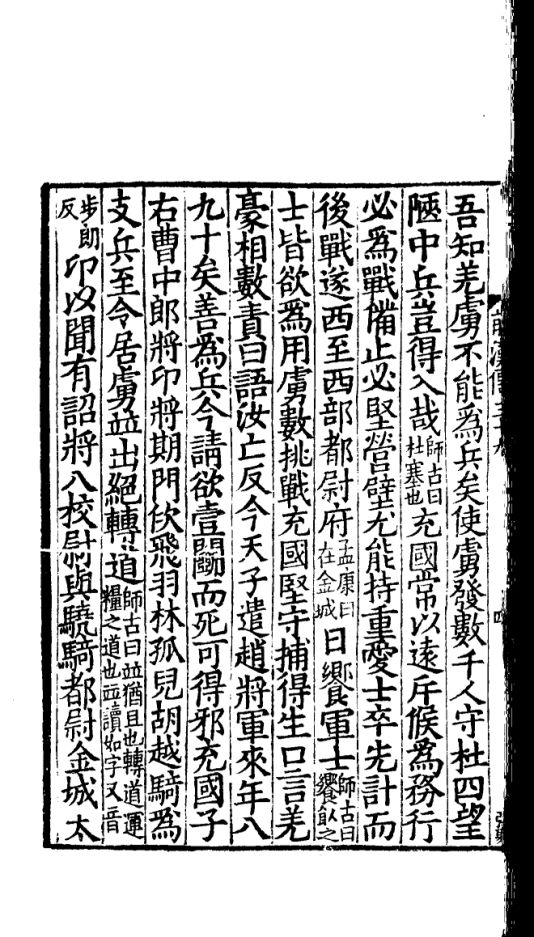 吾知羌虜不能爲兵矣使虜發數千人守杜四望
陿中兵豈得入哉師古曰杜塞也充國常以遠斥候爲務行
必爲戰備止必堅營壁尤能持重愛士卒先計而
後戰遂西至西部都尉府孟康曰在金城日饗軍士師古曰饗飲之
士皆欲爲用虜數挑戰充國堅守捕得生口言羌
豪相數責曰語汝亡反今天子遣趙將軍來年八
九十矣善爲兵今請欲壹鬭而死可得邪充國子
右曹中郎將卬將期門佽飛羽林孤兒胡越騎爲
支兵至令居虜並出絕轉道師古曰並猶且也轉道運糧之道也並讀如字又音
步朗反卬以聞有詔將八校尉與驍騎都尉金城太